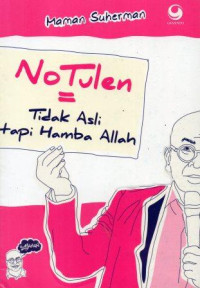 Maman Suherman
NoTulen
=
Tidak Asli
tapi Hamba Allah